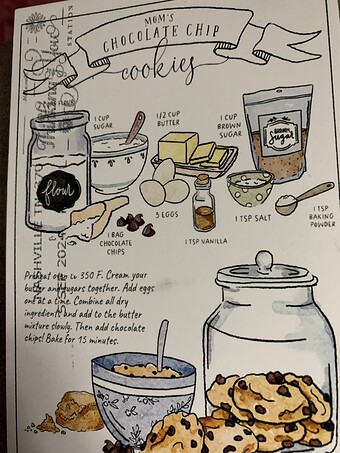 MOM'S
CHOCOLATE CHIP
cookies
STATION
FLOUR
1 CUP
SUGAR
1/2 CUP
BUTTER
1 CUP
BROWN
SUGAR
BROWN
Sugar
flour
3 EGGS
1 TSP VANILLA
1 TSP SALT
1 TSP
BAKING
POWDER
1 BAG
CHOCOLATE
CHIPS
NASHVILLE TN 370
2024
Preheat oven to 350 F. Cream your
butter and sugars together. Add eggs
one at a time. Combine all dry
ingredients and add to the butter
mixture slowly. Then add chocolate
chips! Bake for 15 minutes.